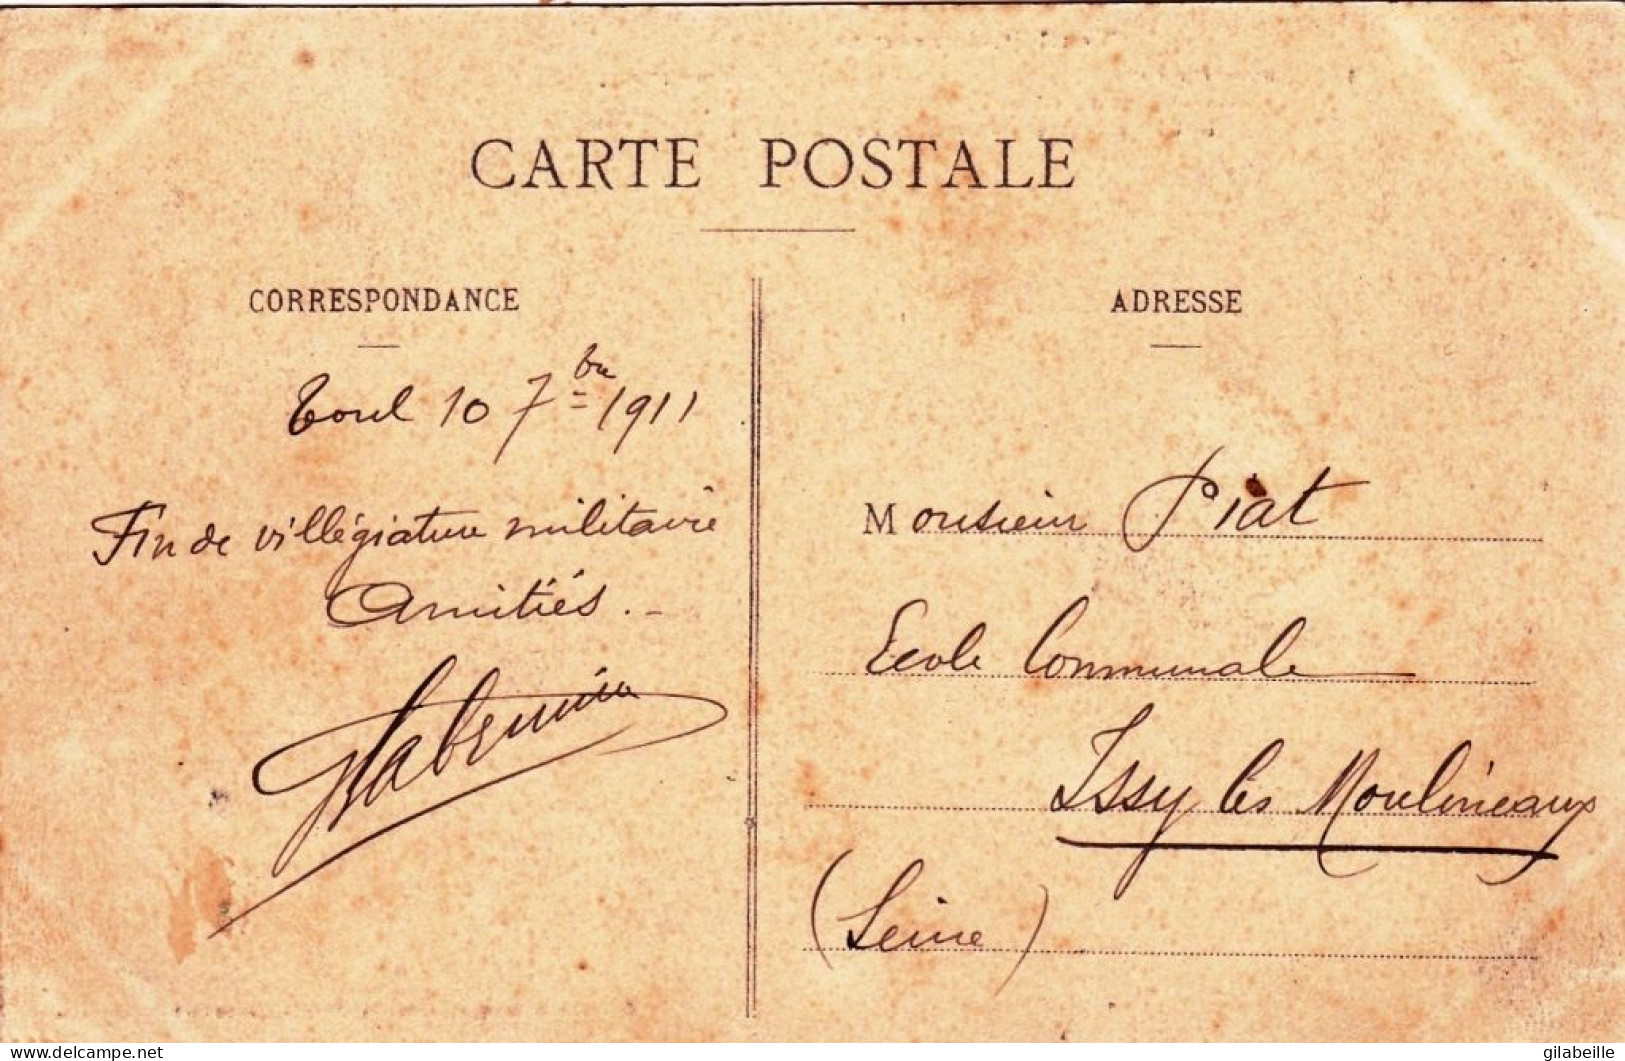 CARTE POSTALE
CORRESPONDANCE
Toul 10 7bre 1911
Fin de villégiature militaire
Amitiés. -
ADRESSE
Monsieur Piat
Ecole Communale
Issy les Moulineaux
(Seine)
www.delcampe.net
gilabeille